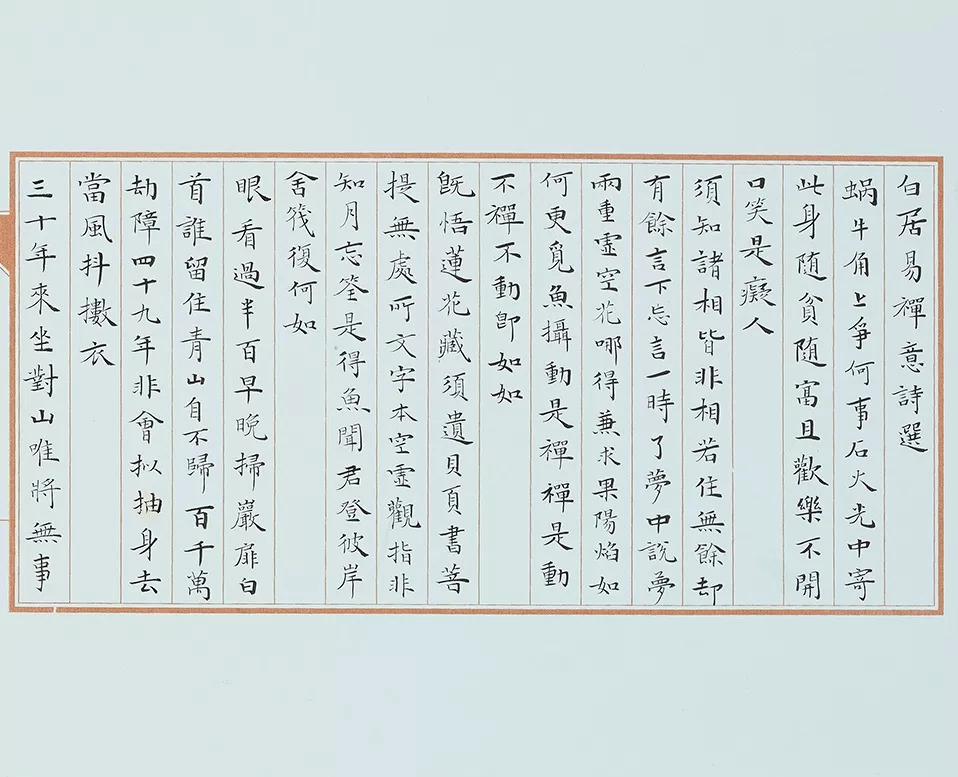 白居易禪意詩選
蝸牛角上爭何事石火光中寄
此身随貧随富且歡樂不開
口笑是癡人
須知諸相皆非相若住無餘却
有餘言下忘言一時了夢中説夢
兩重虛空花哪得兼求果陽焰如
何更覓魚攝動是禪禪是動
不禪不動即如如
既悟蓮花藏須遺貝頁書菩
提無處所文字本空虛觀指非
知月忘筌是得魚聞君登彼岸
舍筏復何如
眼看過半百早晚掃巖扉白
首誰留住青山自不歸百千萬
劫障四十九年非會拟抽身去
當風抖擻衣
三十年來坐對山唯將無事